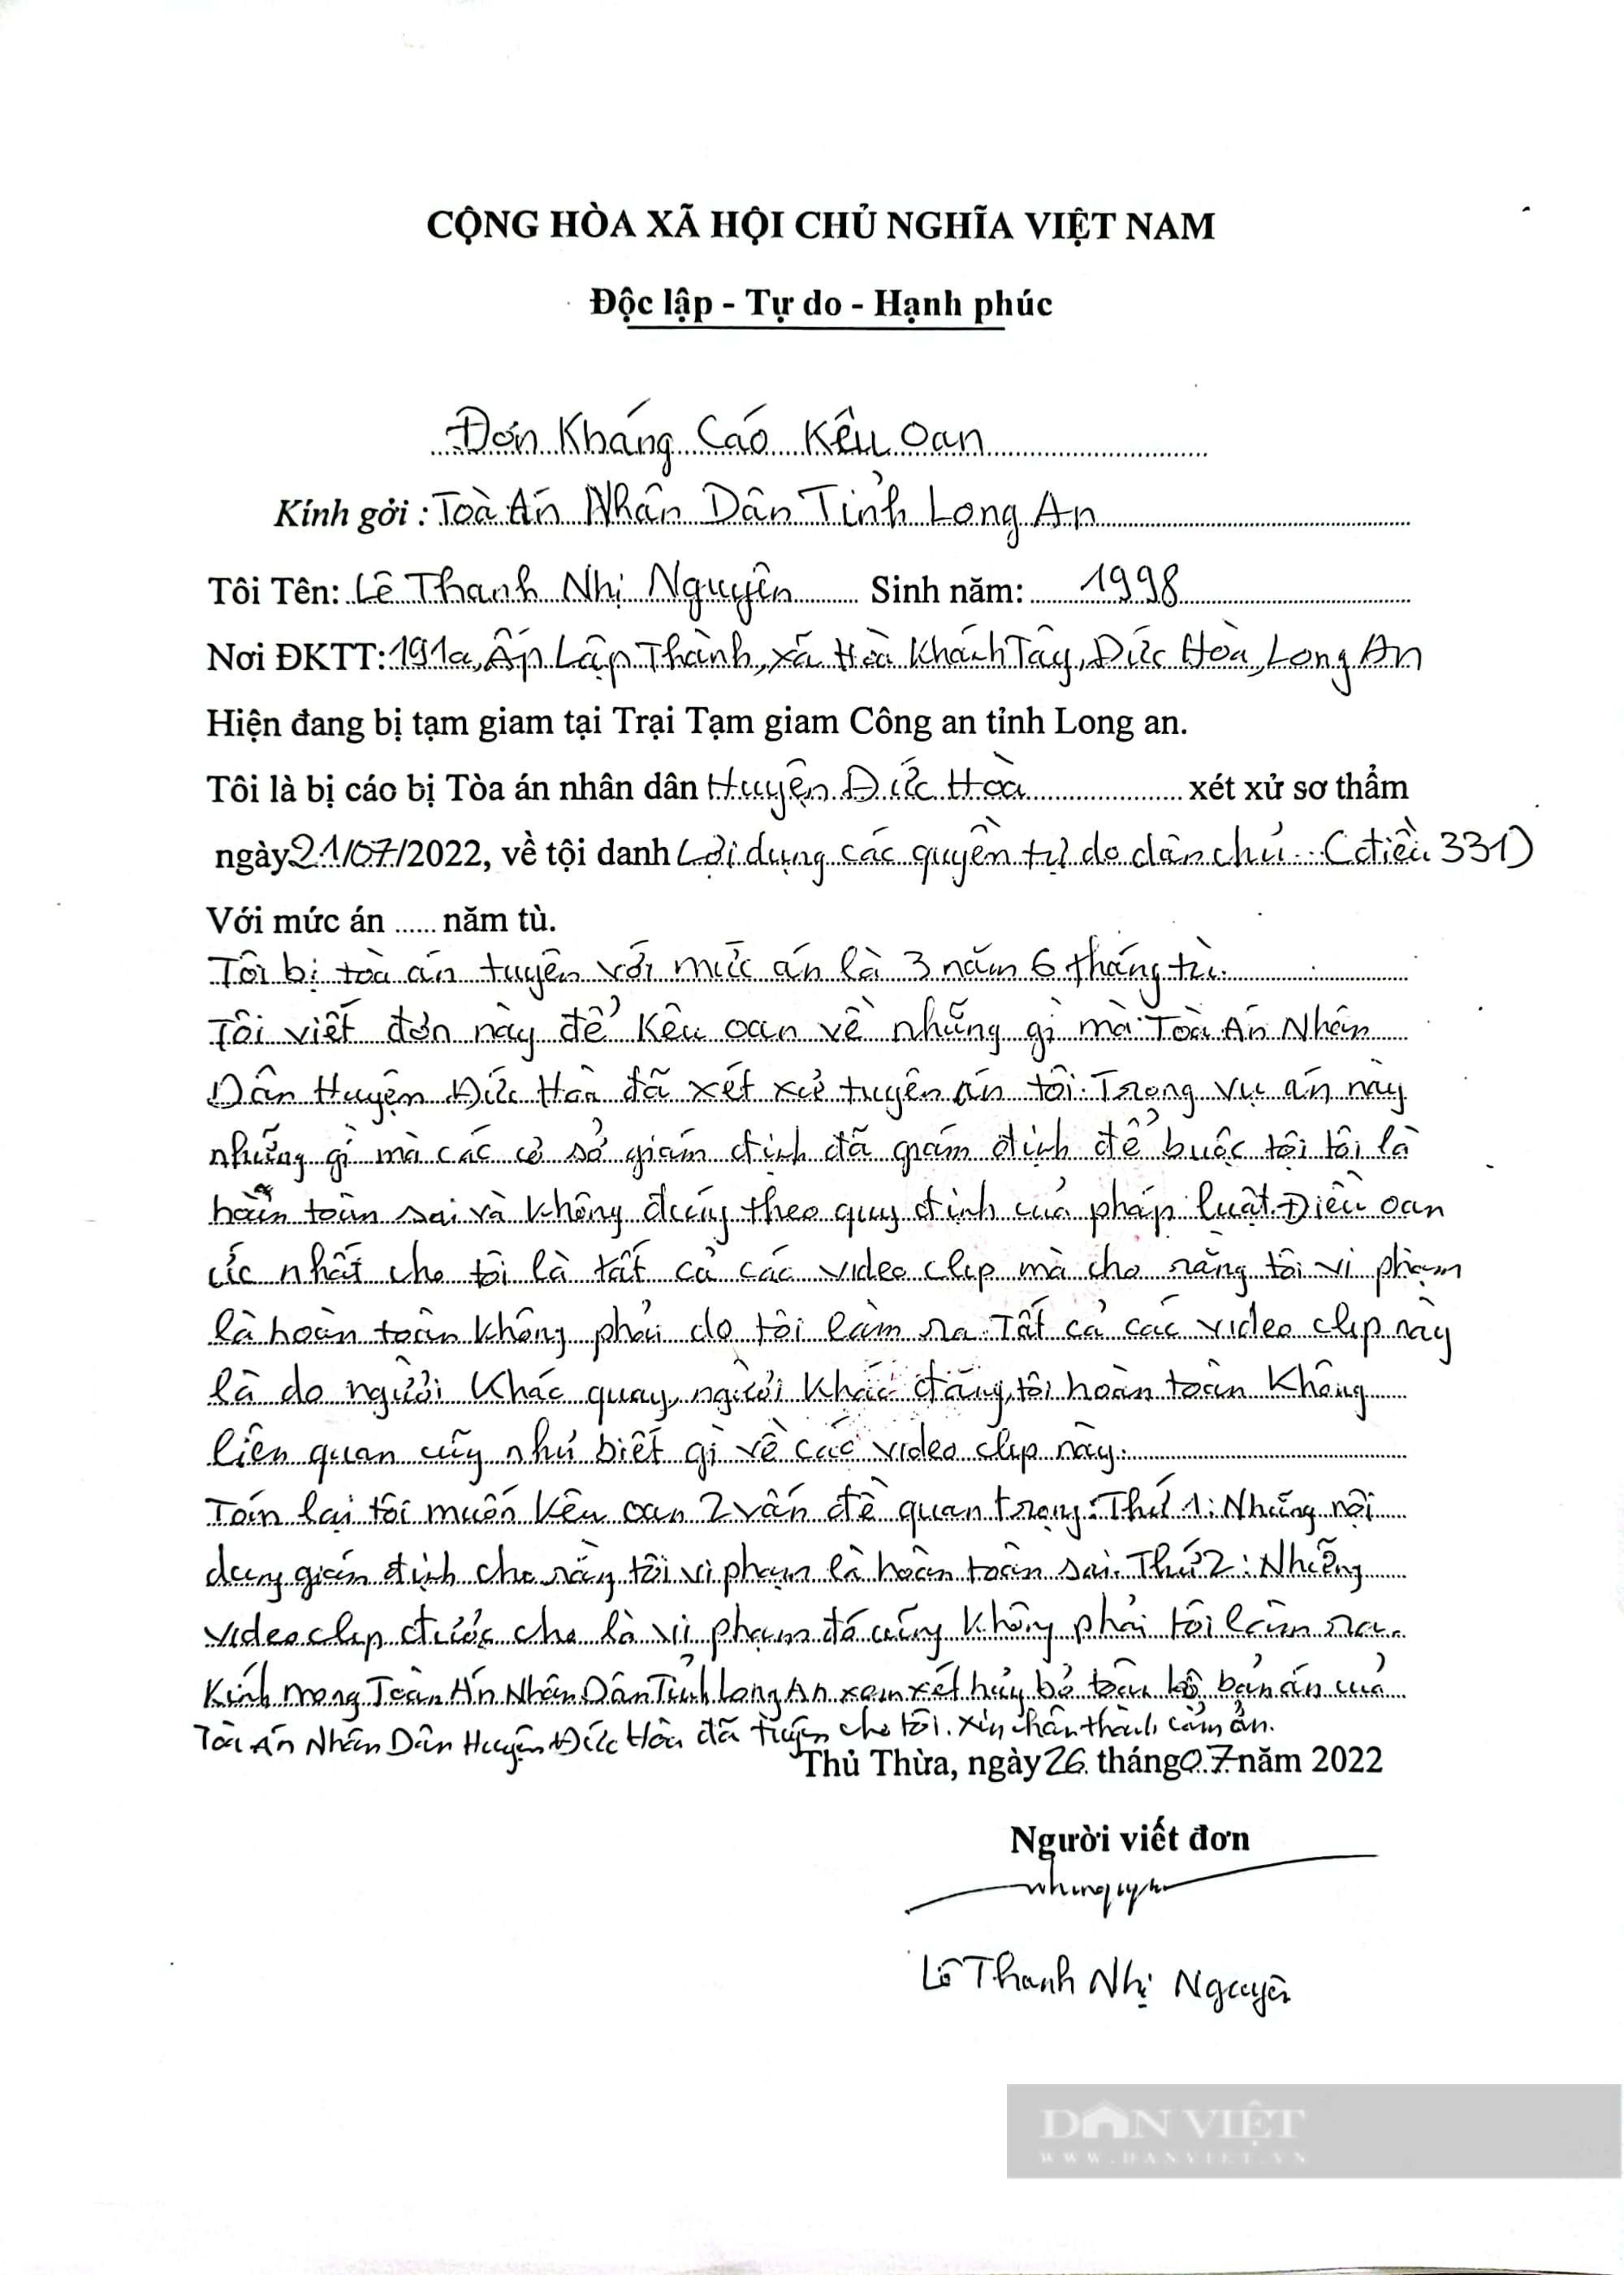 CỘNG HÒA XÃ HỘI CHỦ NGHĨA VIỆT NAM
Độc lập - Tự do - Hạnh phúc
Đơn Kháng Cáo Kêu Oan
Kính gởi : Toà Án Nhân Dân Tỉnh Long An
Tôi Tên: Lê Thanh Nhị Nguyên Sinh năm: 1998
Nơi ĐKTT: 191a, Ấp Lập Thành, xã Hoà Khánh Tây, Đức Hòa, Long An
Hiện đang bị tạm giam tại Trại Tạm giam Công an tỉnh Long an.
Tôi là bị cáo bị Tòa án nhân dân Huyện Đức Hoà xét xử sơ thẩm
ngày 21/07/2022, về tội danh Lợi dụng các quyền tự do dân chủ... (điều 331)
Với mức án ...... năm tù.
Tôi bị toà án tuyên với mức án là 3 năm 6 tháng tù.
Tôi viết đơn này để kêu oan về những gì mà Toà Án Nhân
Dân Huyện Đức Hoà đã xét xử tuyên án tôi. Trong vụ án này
những gì mà các cơ sở giám định đã giám định để buộc tội tôi là
hoàn toàn sai và không đúng theo quy định của pháp luật. Điều oan
ức nhất cho tôi là tất cả các video clip mà cho rằng tôi vi phạm
là hoàn toàn không phải do tôi làm ra. Tất cả các video clip này
là do người khác quay, người khác đăng, tôi hoàn toàn không
liên quan cũng như biết gì về các video clip này.
Tóm lại tôi muốn kêu oan 2 vấn đề quan trọng: Thứ 1: Những nội
dung giám định cho rằng tôi vi phạm là hoàn toàn sai. Thứ 2: Những
video clip được cho là vi phạm đó cũng không phải tôi làm ra.
Kính mong Toàn Án Nhân Dân Tỉnh Long An xem xét hủy bỏ toàn bộ bản án của
Tòa Án Nhân Dân Huyện Đức Hòa đã tuyên cho tôi. Xin chân thành cảm ơn.
Thủ Thừa, ngày 26 tháng 07 năm 2022
Người viết đơn
Nhinguyên
Lê Thanh Nhị Nguyên
DÂN VIỆT
WWW.DANVIET.VN